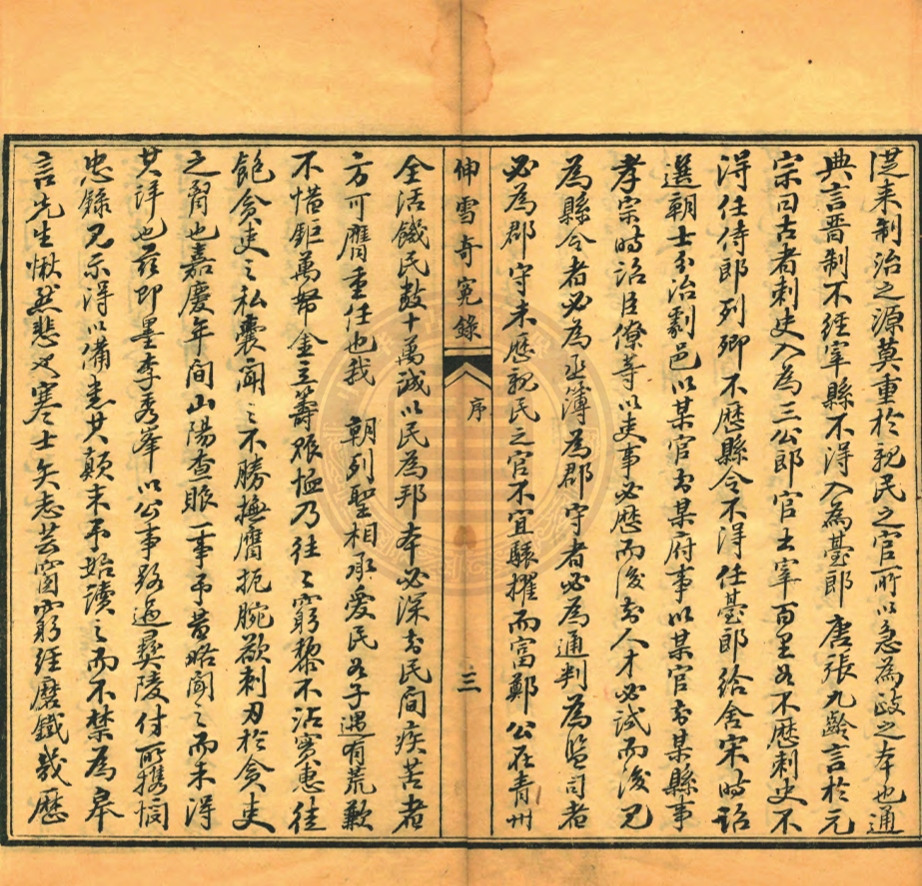 從來制治之源莫重於親民之官所以急為政之本也通
典言晉制不經宰縣不得入為臺郎 唐張九齡言於元
宗曰古者刺史入為三公郎官出宰百里如不歷刺史不
得任侍郎列卿不歷縣令不得任臺郎給舍宋時詔
選朝士分治劇邑以某官知某府事以某官知某縣事
孝宗時詔臣僚等以吏事必歷而後知人才必試而後見
為縣令者必為丞簿為郡守者必為通判為監司者
必為郡守未歷親民之官不宜驟擢而富鄭公在青州
伸雪奇冤錄
序
三
全活饑民數十萬誠以民為邦本必深知民間疾苦者
方可膺重任也我 朝列聖相承愛民如子遇有荒歉
不惜鉅萬帑金立籌賑恤乃往往窮黎不沾實惠徒
飽貪吏之私囊聞之不勝撫膺扼腕欲刺刃於貪吏
之胷也嘉慶年間山陽查賑一事予昔略聞之而未得
其詳也茲即墨李秀峯以公事路過彝陵付所攜憫
忠錄見示得以備悉其顛末予始讀之而不禁為皋
言先生愀然悲也寒士矢志芸窗窮經磨鐵哉歷